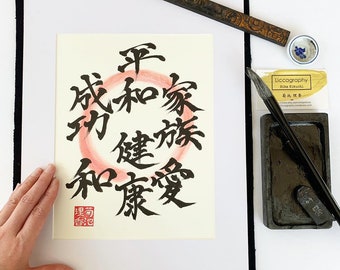 平和
家族愛
健康
成功
和
Liccagraphy
Rika Kikuchi